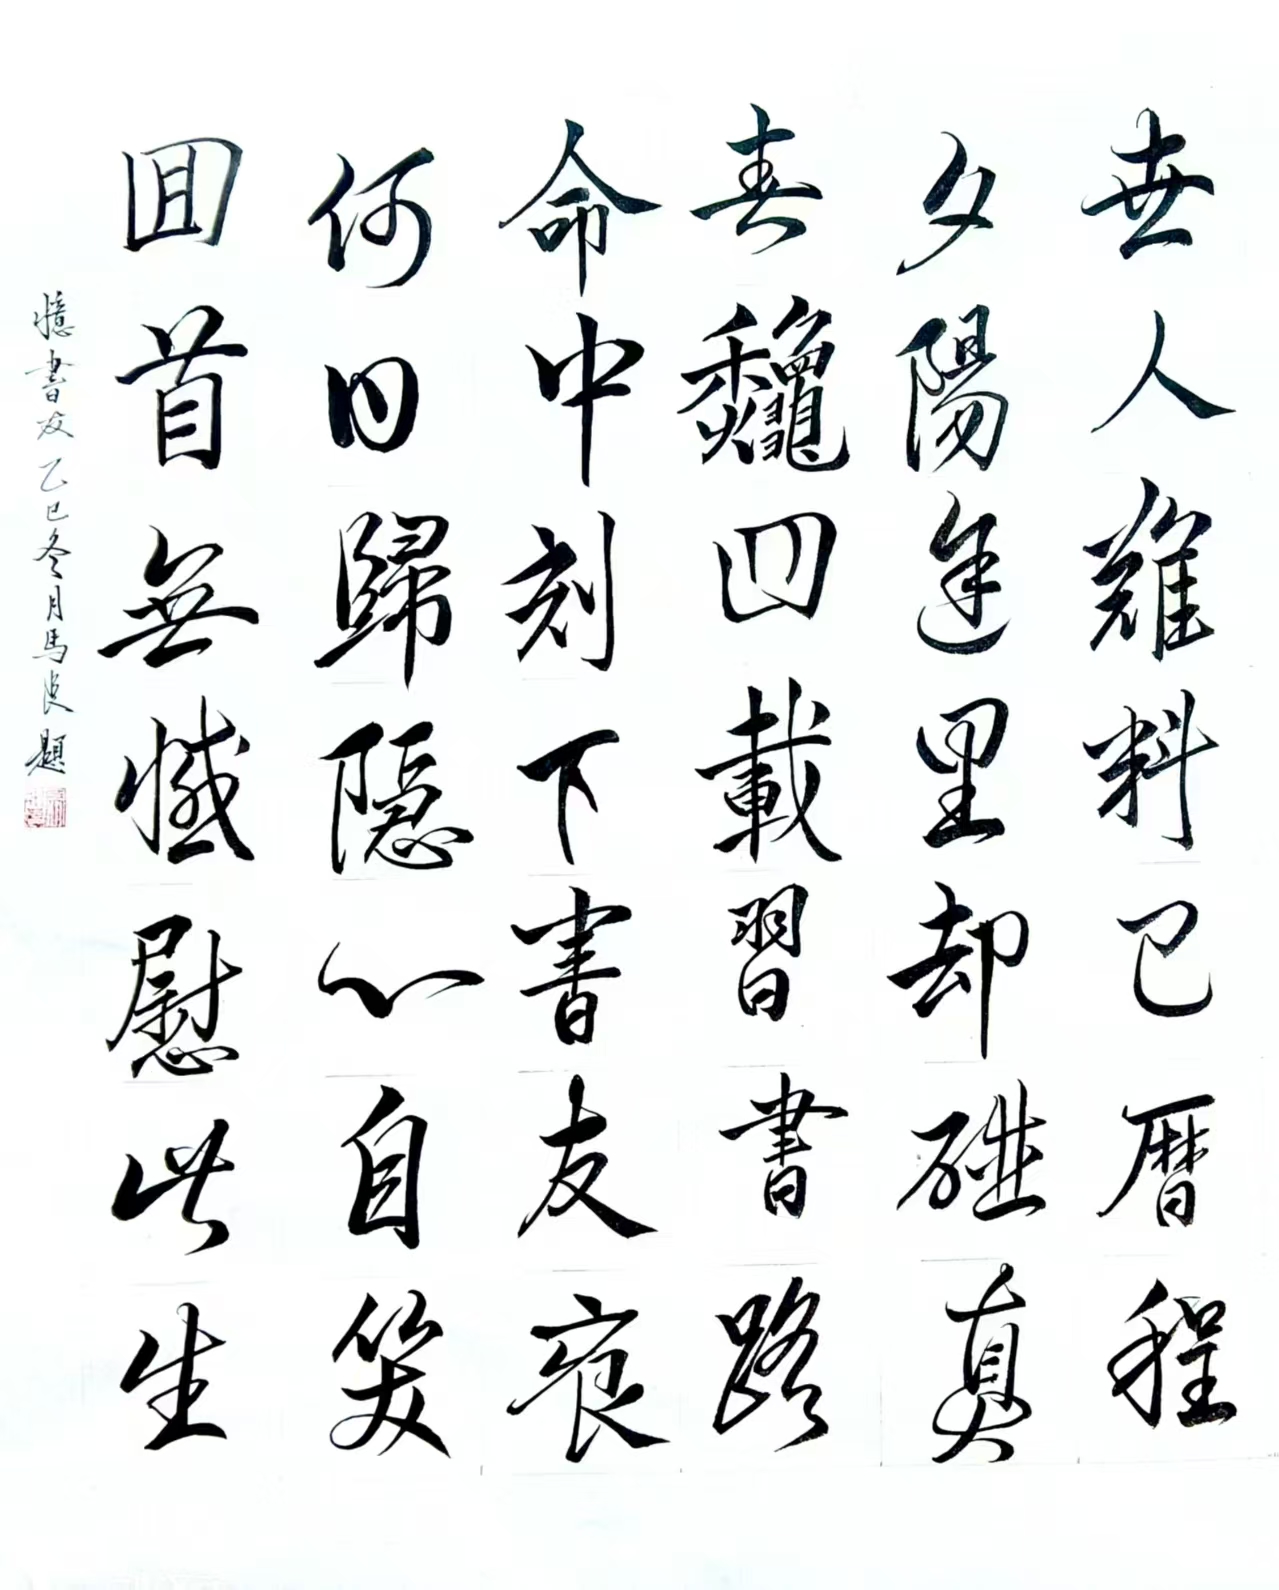 世人難料已曆程
夕陽途里却碰真
春龝四載習書路
命中刻下書友痕
何日歸隱心自笑
回首無憾慰此生
憶書友乙巳冬月馬良題